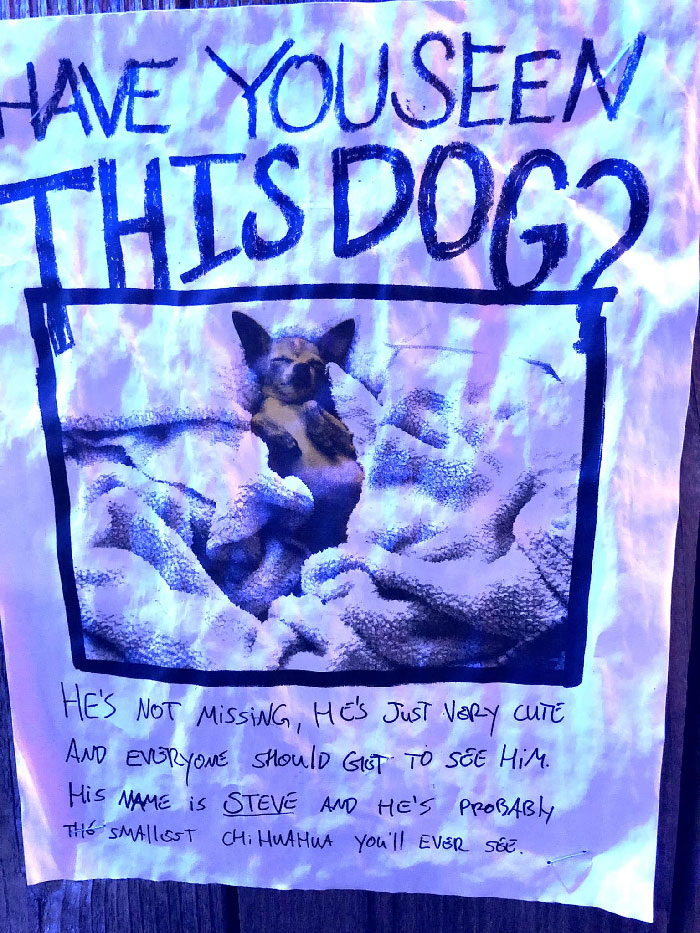 HAVE YOU SEEN
THIS DOG?
HE'S NOT MISSING, HE'S JUST VERY CUTE
AND EVERYONE SHOULD GET TO SEE HIM.
HIS NAME IS STEVE AND HE'S PROBABLY
THE SMALLEST CHIHUAHUA YOU'll EVER SEE.